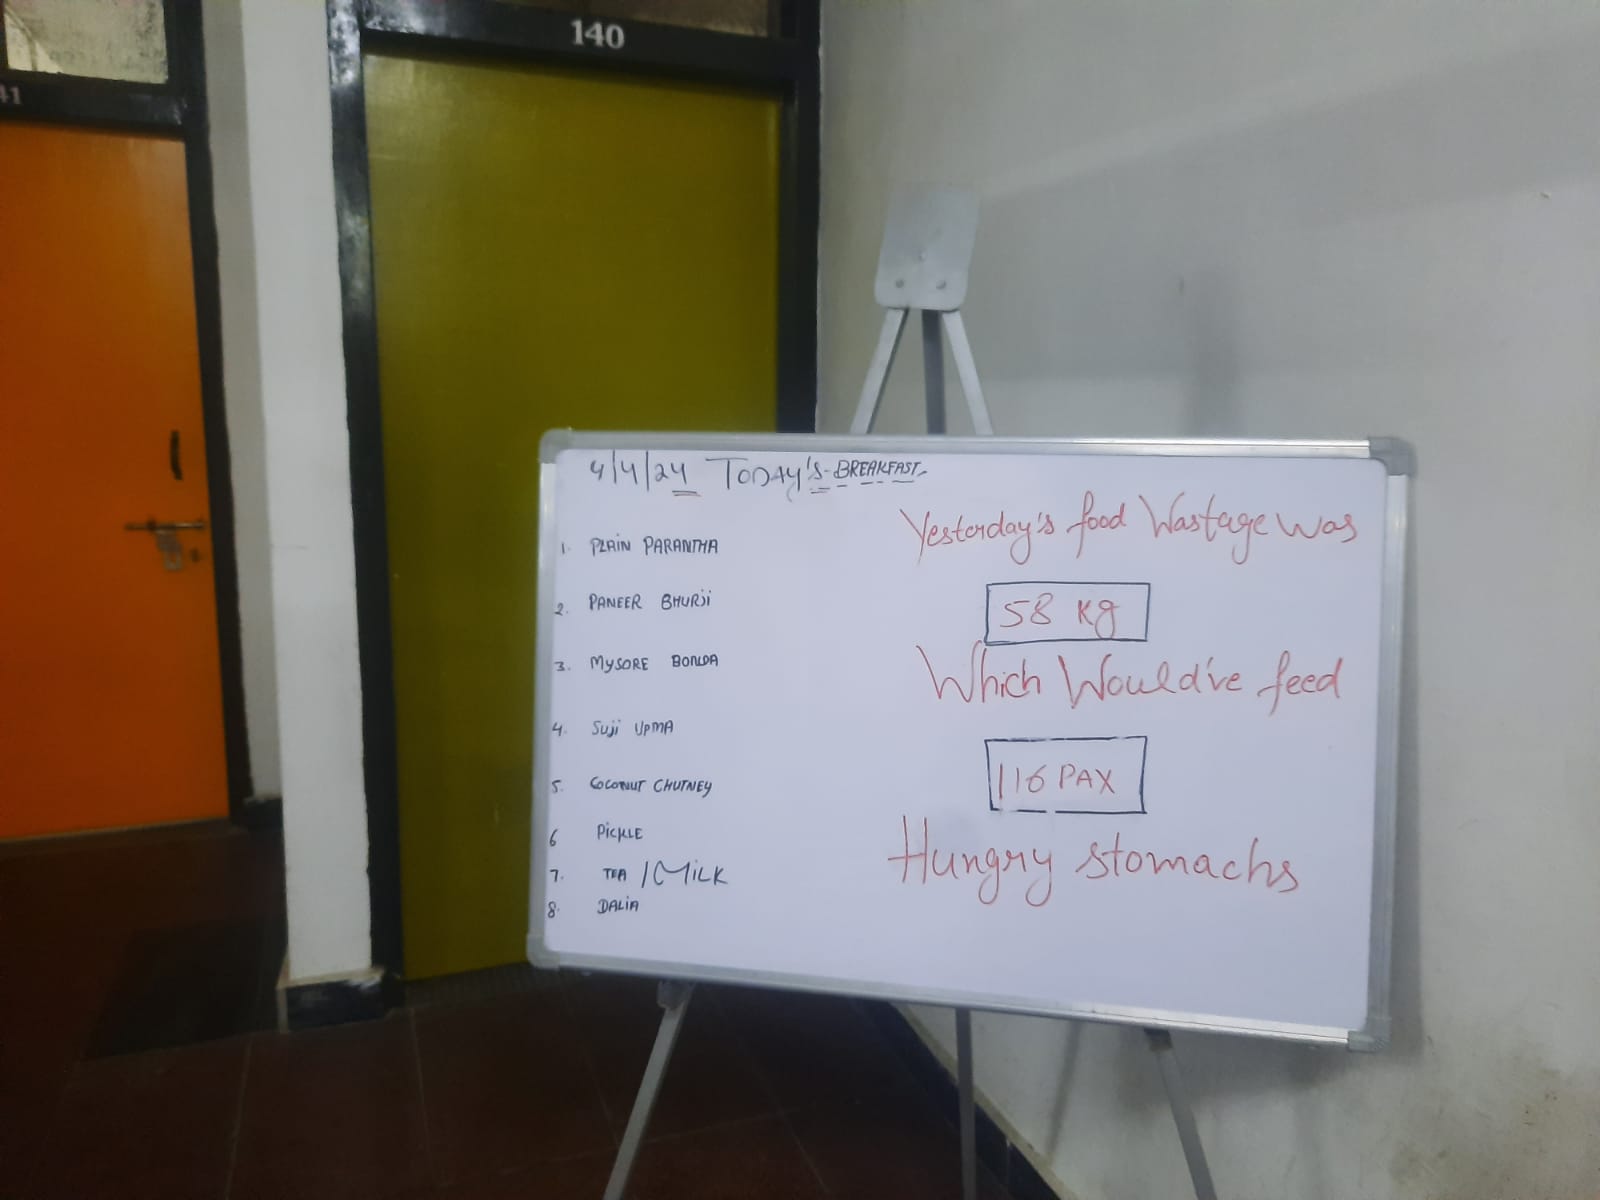 140
41
4/4/24 TODAY'S BREAKFAST
1. PLAIN PARANTHA
2. PANEER BHURJI
3. MYSORE BONDA
4. SUJI UPMA
5. COCONUT CHUTNEY
6 PICKLE
7. TEA / MILK
8. DALIA
Yesterday's food Wastage was
58 Kg
Which Would've feed
116 PAX
Hungry stomachs